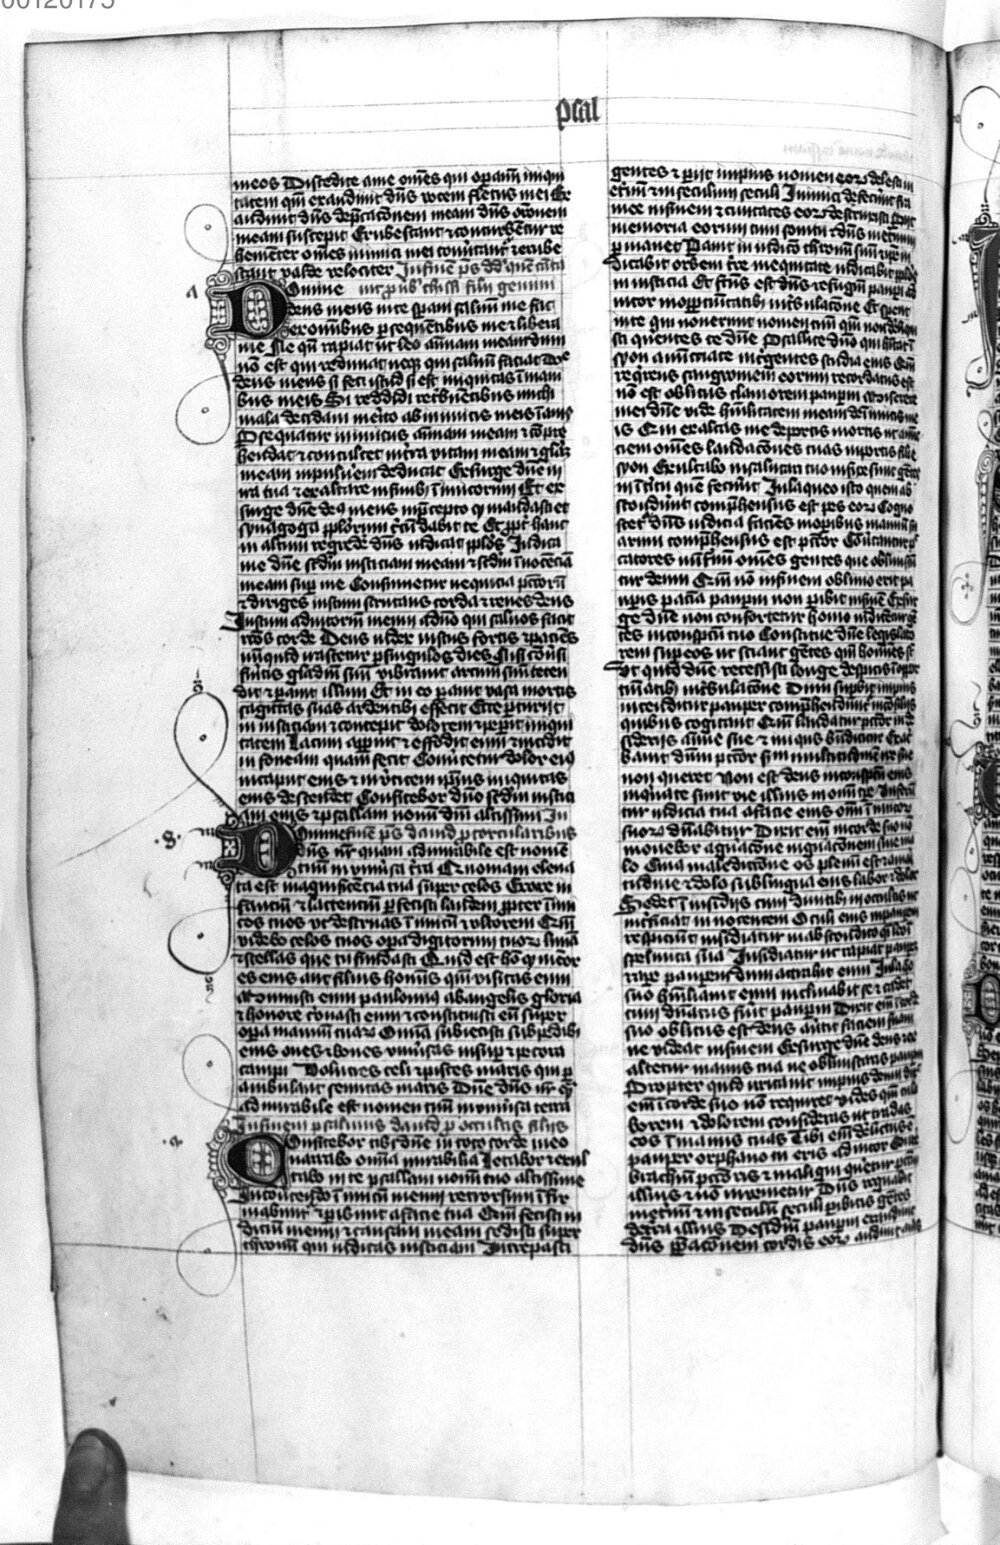 00120175
psal
meos Discedite a me om̄es qui opamī iniqui
tatem qm̄ exaudiuit dn̄s vocem fletus mei Ex
audiuit dn̄s dep̄cacōnem meam dn̄s orōnem
meam suscepit Erubescant ⁊ conturbētur ve
hementer om̄es inimici mei cōuertant᷑ ⁊ erube
scant valde velociter In finē ps̄ dd̄ quē cāta
.7. Domine
deus meus in te sp̄aui saluū me fac
ex om̄ibus p̄sequētibus me ⁊ libera
me Ne qn̄ rapiat ut leo aīmam meam dum
nō est qui redimat neq̄ qui saluū faciat Dn̄e
deus meus si feci istud si est iniquitas ī mani
bus meis Si reddidi retribuētibus michi
mala decidam mer̄ito ab inimicis meis īanis
P̄sequatur inimicus aīmam meam ⁊ cōpre
hendat ⁊ conculcet in t̄ra vitam meam ⁊ glāz
meam in puluem deducat Exurge dn̄e in
ira tua ⁊ exaltare in finib᷑ īimicorum Et ex
surge dn̄e deꝰ meus in p̄cepto qđ mandasti et
synagoga pplorum c̄cūdabit te Et ꝓpt̄ hanc
in altum regrede dn̄s iudicat pplos Iudica
me dn̄e sc̄dm iusticiam meam ⁊ sc̄dm īnocēciā
meam sup̄ me Consumetur nequicia pctorū
⁊ diriges iustum scrutans corda ⁊ renes deus
Iustum adiutoriū meum a dn̄o qui saluos facit
rectos corde Deus iudex iustus fortis ⁊ paciēs
nūquid irascetur p̄ singulos dies Nisi cōuersi
fuitis gladiū suū vibrauit arcum suū teten
dit ⁊ parauit illum Et in eo parauit vasa mortis
sagittas suas ardentib᷑ effecit Ecce p̄turiit
in iusticiam ⁊ concepit dolorem ⁊ pep̄it iniqui
tatem Lacum apuit ⁊ effodit eum ⁊ incidit
in foueam quam fecit Conuertetur dolor eiꝰ
in caput eius ⁊ in v̄ticem ip̄ius iniquitas
eius descendet Confitebor dn̄o sc̄dm iustici
am eius ⁊ psallam nomī dn̄i altissimi In
.8. finē ps̄ dauid p torcularibus
Domine
dn̄s nr̄ quam admirabile est nomē
tuū in vniūsa t̄ra Qm̄ eleua
ta est magnificēcia tua sup̄ celos Ex ore in
fanciū ⁊ lactenciū p̄fecisti laudem ꝓpter īimi
cos tuos vt destruas īimicū ⁊ vltorem Qm̄
videbo celos tuos opa digitorum tuoꝝ lunā
⁊ stellas que tu fundasti Quid est hō qđ memor
es eius aut filius homīs qm̄ visitas eum
Minuisti eum paulominꝰ ab angelis gloria
⁊ honore coronasti eum ⁊ constituisti eū super
opa manuū tuaꝝ Omīa subiecisti sub pedib᷑
eius oues ⁊ boues vniūsas insup̄ ⁊ pecora
campi Volucres celi ⁊ pisces maris qui p̄
ambulant semitas maris Dn̄e dn̄s nr̄ qm̄
admirabile est nomen tuū in vniūsa terra
In finem psalmus dauid p occultis filii
.9. Confitebor tibi dn̄e in toto corde meo
narrabo omīa mirabilia Letabor ⁊ exul
tabo in te psallam nomī tuo altissime
In conuertendo īimicū meum retrorsum īfir
mabunt᷑ ⁊ peribunt a facie tua Qm̄ fecisti iu
dicium meum ⁊ causam meam sedisti super
thronū qui iudicas iusticiam Increpasti
gentes ⁊ periit impius nomen eoꝝ delesti in
et̄num ⁊ in seculum seculi Inimici defecerūt fra
mee in finem ⁊ ciuitates eoꝝ destruxisti Periit
memoria eorum cum sonitu ⁊ dn̄s in et̄num
permanet Parauit in iudicō thronū suū ⁊ ip̄e iu
dicabit orbem t̄re in equitate iudicabit pplos
in iusticia Et fc̄us est dn̄s refugiū pauperi ad
iutor in oportunitatib᷑ in tribulacōne Et sperent
in te qui nouerunt nomen tuū qm̄ non dereliqui
sti querentes te dn̄e Psallite dn̄o qui habitat ī
syon annūciate int̄ gentes studia eius Qm̄
requirens sanguinem eorum recordatus est
nō est oblitus clamorem pauperum Miserere
mei dn̄e vide humilitatem meam de inimicis me
is Qui exaltas me de portis mortis ut annū
ciem om̄es laudacōnes tuas in portis filie
syon Exultabo in salutari tuo infixe sunt gētes
in īteritu quē fecerūt In laqueo isto quem ab
sconderūt comp̄hensus est pes eoꝝ Cogno
scet᷑ dn̄s iudicia faciēs in opibus manuū su
arum comp̄hensus est pctor Conuertantur pec
catores in īfernū om̄es gentes que obliuiscū
tur deum Qm̄ nō in finem obliuio erit pau
peris paciencia pauperum non peribit in finē Exsur
ge dn̄e non confortetur homo iudicentur gē
tes in conspectu tuo Constitue dn̄e legislato
rem sup̄ eos ut sciant gētes qm̄ homines st̄
Ut quid dn̄e recessisti longe despicis ī opor
tunitatib᷑ in tribulacōne Dum supbit impius
incenditur pauper comprehendunt᷑ in consiliis
quibus cogitant Qm̄ laudatur pctor in de
sideriis anime sue ⁊ iniquus bn̄dicitur Exac
bauit dn̄m pctor sc̄dm multitudinē ire sue
non queret Non est deus in conspectu eius
inquinate sunt vie illius in omī tp̄e Auferū
tur iudicia tua a facie eius om̄ī īimicoꝝ
suoꝝ dn̄abitur Dixit em̄ in corde suo nō
mouebor a gn̄acōne in gn̄acōnem sine ma
lo Cuius maledictione os plenū est ⁊ amari
tudine ⁊ dolo sub lingua eius labor ⁊ dolor
Sedet ī insidiis cum diuitib᷑ in occultis ut
interficiat innocentem Oculi eius in pauperem
respiciunt insidiatur in abscondito quasi leo ī
spelunca sua Insidiatur ut rapiat pauperem
rapere pauperem dum attrahit eum In laqueo
suo humiliauit eum inclinabit se ⁊ cadet
cum dn̄atus fuerit pauperum Dixit em̄ ī corde
suo oblitus est deus auertit faciem suam
ne videat in finem Exsurge dn̄e deus exal
tetur manus tua ne obliuiscaris pauperum
Propter quid irritauit impius deum dixit
em̄ ī corde suo nō requiret Vides qm̄ tu la
borem ⁊ dolorem consideras ut tradas
eos ī manus tuas Tibi em̄ derelictus est
pauper orphano tu eris adiutor Contere
brachiū pctoris ⁊ maligni queretur pctm̄
illius ⁊ nō inuenietur Dn̄s regnabit
in et̄num ⁊ in seculū seculi peribitis gētes
de terra illius Desideriū pauperum exaudiuit
dn̄s p̄paracōnem cordis eoꝝ audiuit auris